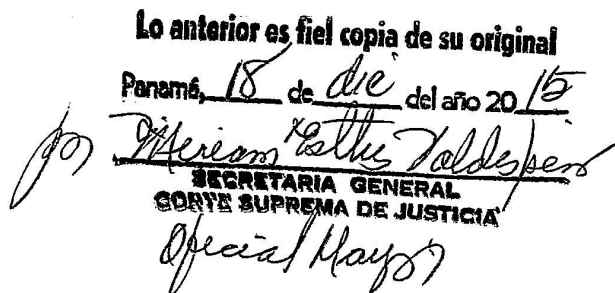 Lo anterior es fiel copia de su original
Panamá, 18 de dic del año 2015
por Miriam Esther Valdespino
SECRETARIA GENERAL
CORTE SUPREMA DE JUSTICIA
Oficial Mayor